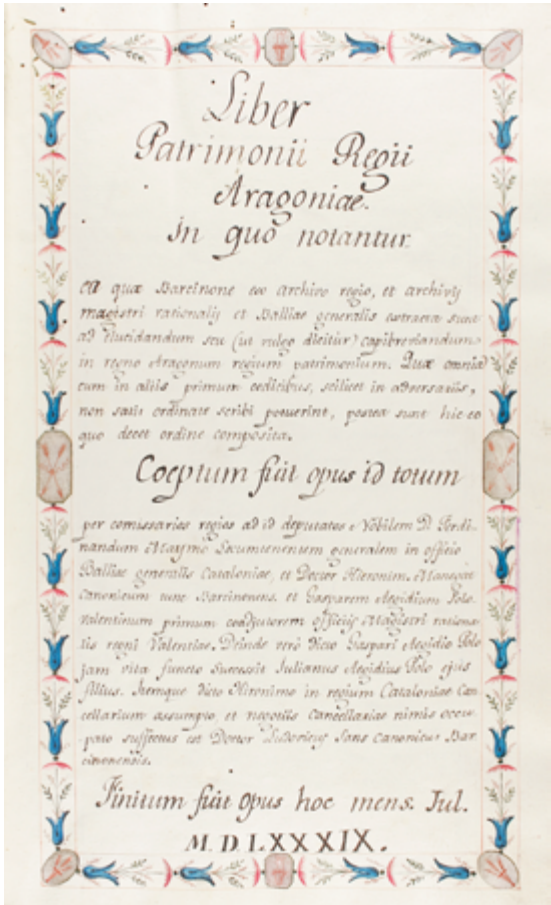 Liber
Patrimonii Regii
Aragoniae.
in quo notantur
ea quæ Barcinone exo Archivo regio, et Archivijs
magistri rationalis et Balliæ generalis extracta sunt
ad elucidandum seu (ut vulgo dicitur) capibreviandum
in regno Aragonum regium patrimonium. Quæ omnia
cum in aliis primum codicibus, scilicet in adversariis,
non satis ordinate scribi potuerint, postea sunt hic eo
quo decet ordine composita.
Coeptum fuit opus id totum
per comissarios regios ad id deputatos Nobilem D. Ferdi-
nandum Locumtenentem generalem in officio
Balliæ generalis Cataloniae, et Doctor Hieronim. Manegat
Canonicum tunc Barcinonens. et Gasparem Aegidium Polo
valentinum primum coadjutorem officiis Magistri rationa-
lis regni Valentiae. Deinde verò dicto Gaspari Aegidio Polo
jam vita functo successit Iulianus Aegidius Polo ejus
filius. Itemque dicto Hironimo in regium Cataloniae Can
cellarium assumpto, et negotiis Cancellariae nimis occu-
pato suffectus est Doctor Ludovicus Sans Canonicus Bar
cinonensis.
Finitum fuit opus hoc mens. Iul.
M. D. LXXXIX.